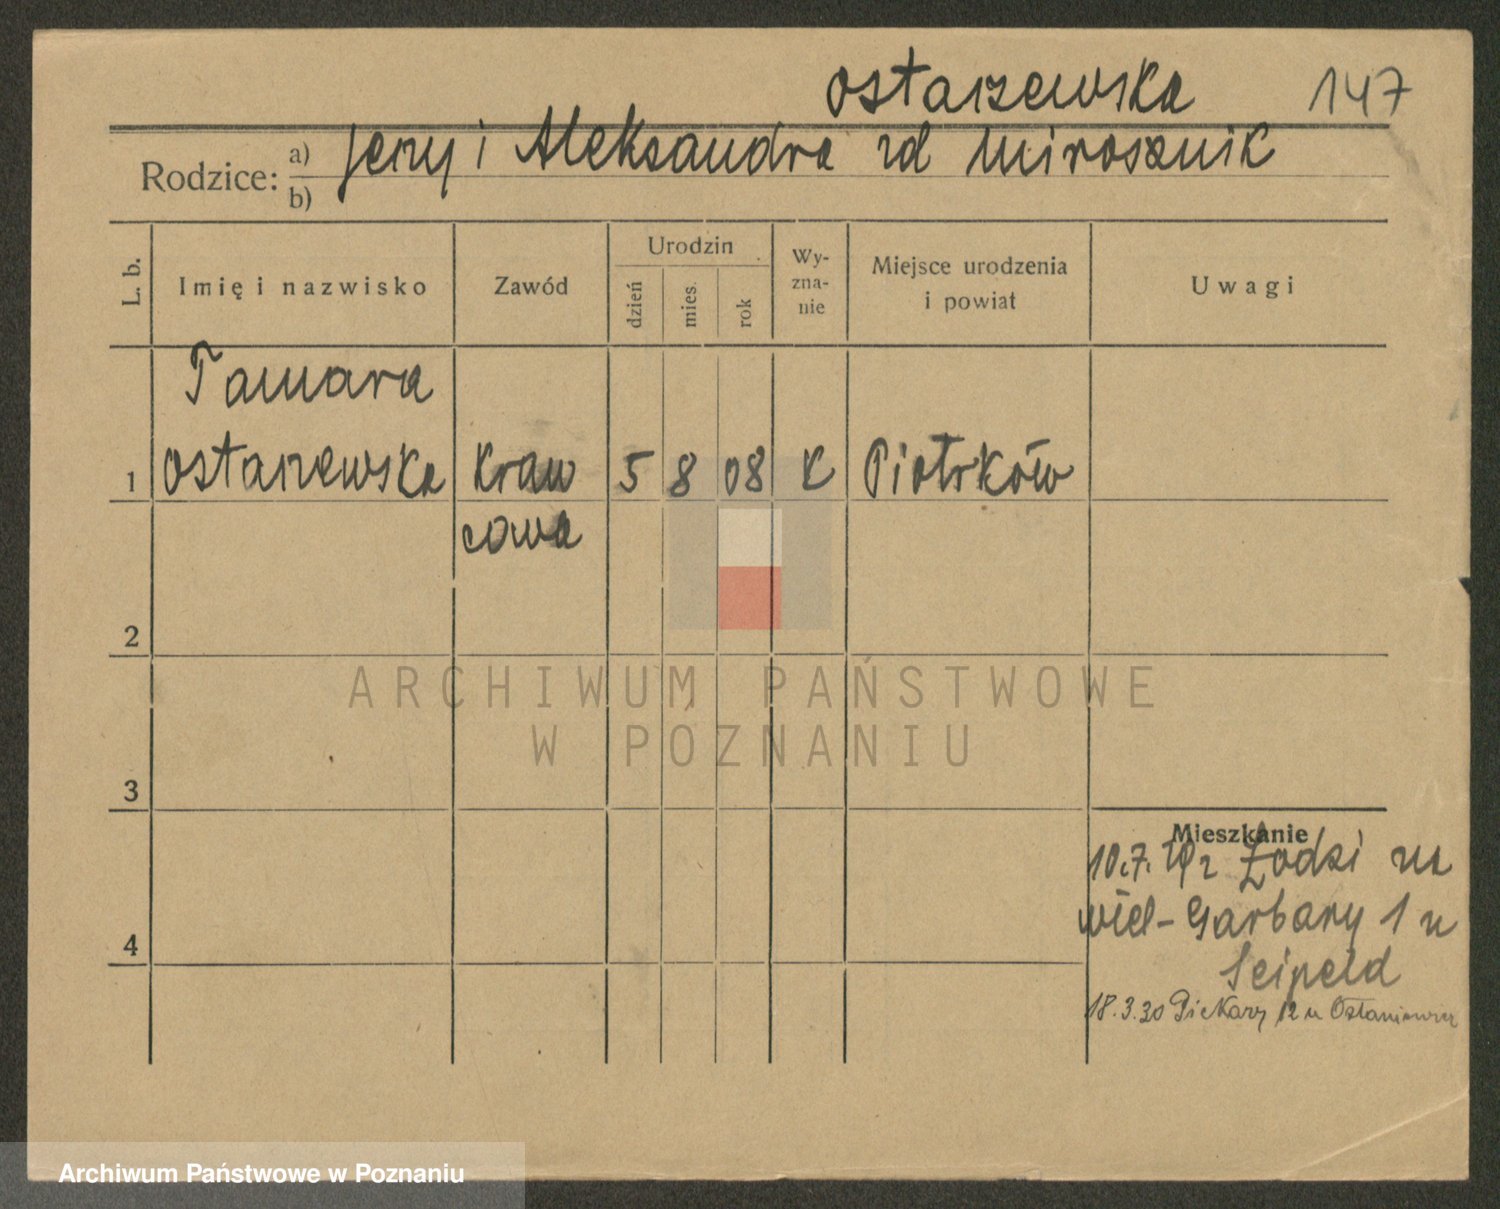 Ostaszewska 147
Rodzice: a) Jerzy i Aleksandra zd Mirosznik
b)
L. b. Imię i nazwisko Zawód Urodzin dzień mies. rok Wy-zna-nie Miejsce urodzenia i powiat Uwagi
Tamara
1 Ostaszewska Kraw 5 8 08 K Piotrków
cowa
2
ARCHIWUM PAŃSTWOWE
W POZNANIU
3
Mieszkanie
10.7. z Łodzi na
Wiel-Garbary 1 u
Seipeld
4
18.3.30 Piekary 12 u
Archiwum Państwowe w Poznaniu